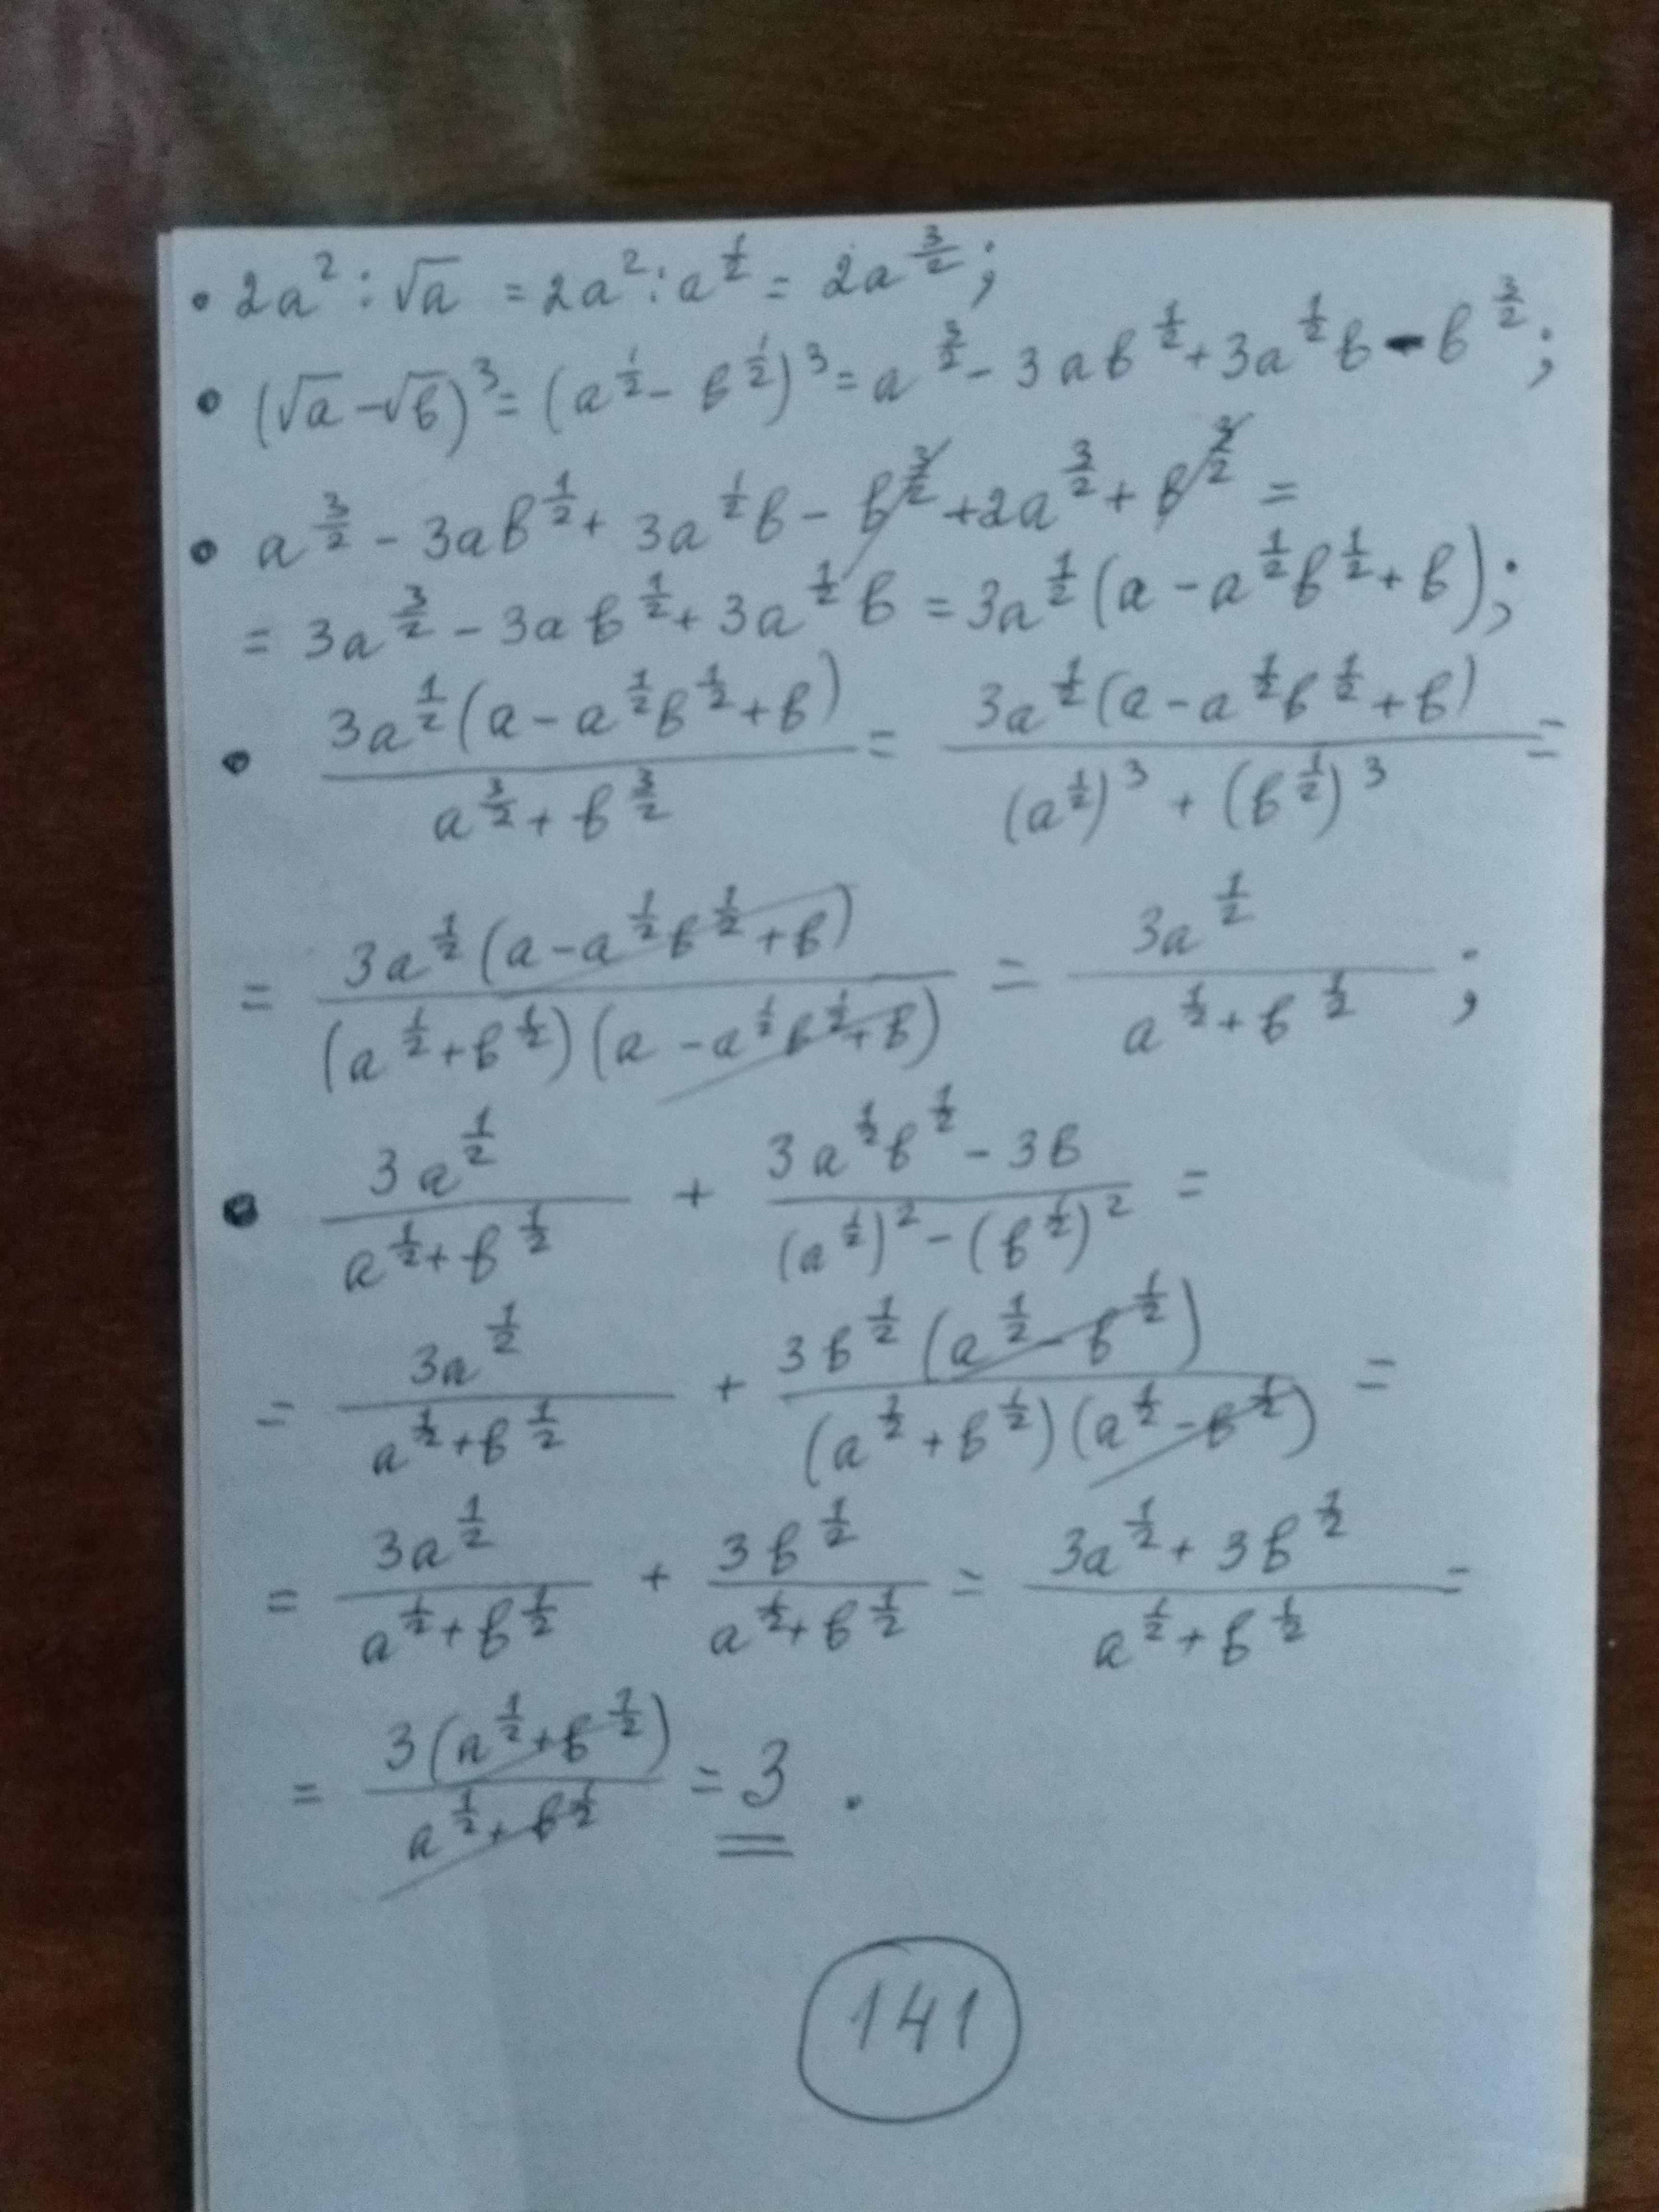 • 2a² : √a = 2a² : a^(1/2) = 2a^(3/2);
• (√a - √b)³ = (a^(1/2) - b^(1/2))³ = a^(3/2) - 3ab^(1/2) + 3a^(1/2)b - b^(3/2);
• a^(3/2) - 3ab^(1/2) + 3a^(1/2)b - b^(3/2) + 2a^(3/2) + b^(3/2) =
= 3a^(3/2) - 3ab^(1/2) + 3a^(1/2)b = 3a^(1/2)(a - a^(1/2)b^(1/2) + b);
• (3a^(1/2)(a - a^(1/2)b^(1/2) + b))/(a^(3/2) + b^(3/2)) = (3a^(1/2)(a - a^(1/2)b^(1/2) + b))/((a^(1/2))³ + (b^(1/2))³) =
= (3a^(1/2)(a - a^(1/2)b^(1/2) + b))/((a^(1/2) + b^(1/2))(a - a^(1/2)b^(1/2) + b)) = (3a^(1/2))/(a^(1/2) + b^(1/2));
• (3a^(1/2))/(a^(1/2) + b^(1/2)) + (3a^(1/2)b^(1/2) - 3b)/((a^(1/2))² - (b^(1/2))²) =
= (3a^(1/2))/(a^(1/2) + b^(1/2)) + (3b^(1/2)(a^(1/2) - b^(1/2)))/((a^(1/2) + b^(1/2))(a^(1/2) - b^(1/2))) =
= (3a^(1/2))/(a^(1/2) + b^(1/2)) + (3b^(1/2))/(a^(1/2) + b^(1/2)) = (3a^(1/2) + 3b^(1/2))/(a^(1/2) + b^(1/2)) =
= (3(a^(1/2) + b^(1/2)))/(a^(1/2) + b^(1/2)) = 3.
141